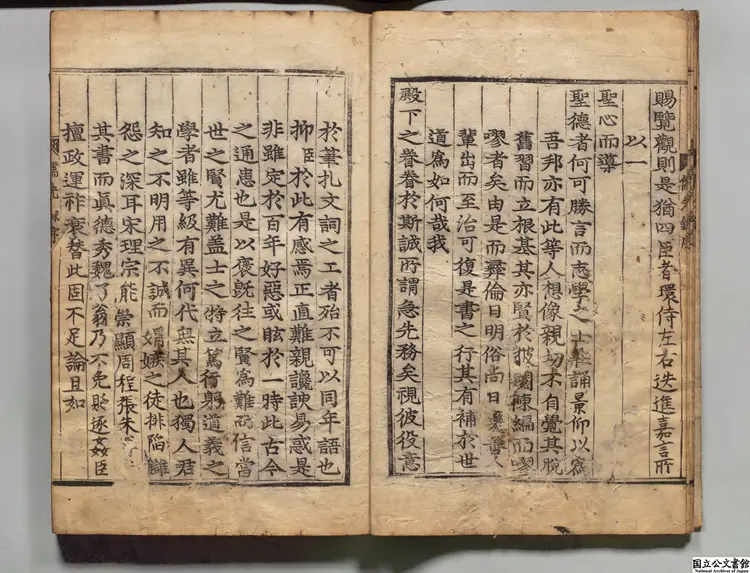 賜覽觀則是猶四臣者環侍左右迭進嘉言所
以一
聖心而導
聖德者何可勝言而志學之士莊誦景仰以爲
吾邦亦有此等人想像親切未自覺其脫
舊習而立根基其亦賢於披閱陳編而嘐
嘐者矣由是而彛倫日明俗尙日 人
輩出而至治可復是書之行其有補於世
道爲如何哉我
殿下之眷眷於斯誠所謂急先務矣視彼役意
於華扎文詞之工者殆不可以同年語也
抑臣於此有感焉正直難親讒諛易惑是
非雖定於百年好惡或眩於一時此古今
之通患也是以褒旣往之賢爲難而信當
世之賢尤難盖士之特立篤行躬道義之
學者雖等級有異何代無其人也獨人君
知之不明用之不誠而娟嫉之徒排陷
怨之深耳宋理宗能崇顯周程張朱
其書而眞德秀魏了翁乃不免貶逐姦臣
擅政運祚衰替此固不足論且如
国立公文書館
National Archives of Japan